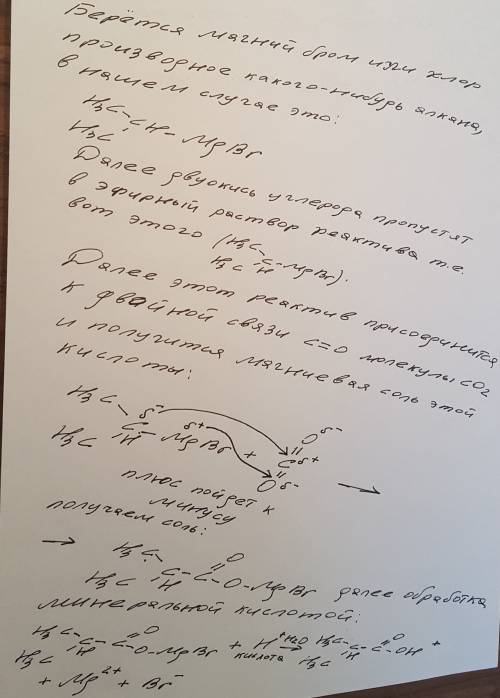 Берётся магний бром или хлор
производное какого-нибудь алкана,
в нашем случае это:
H3C
C H - MgBr
H3C
Далее двуокись углерода пропустят
в эфирный раствор реактива т.е.
вот этого (H3C C - MgBr).
H3C H
Далее этот реактив присоединится
к двойной связи C=O молекулы CO2
и получится магниевая соль этой
кислоты:
H3C δ- δ+ O δ-
C H MgBr + C δ+ →
H3C O δ-
плюс пойдет к
минусу
получаем соль:
→ H3C C - C O O - MgBr далее обработка
H3C H
минеральной кислотой:
H3C C - C O O - MgBr + H+ H2O → H3C C - C O OH +
H3C H кислота H3C H
+ Mg2+ + Br-